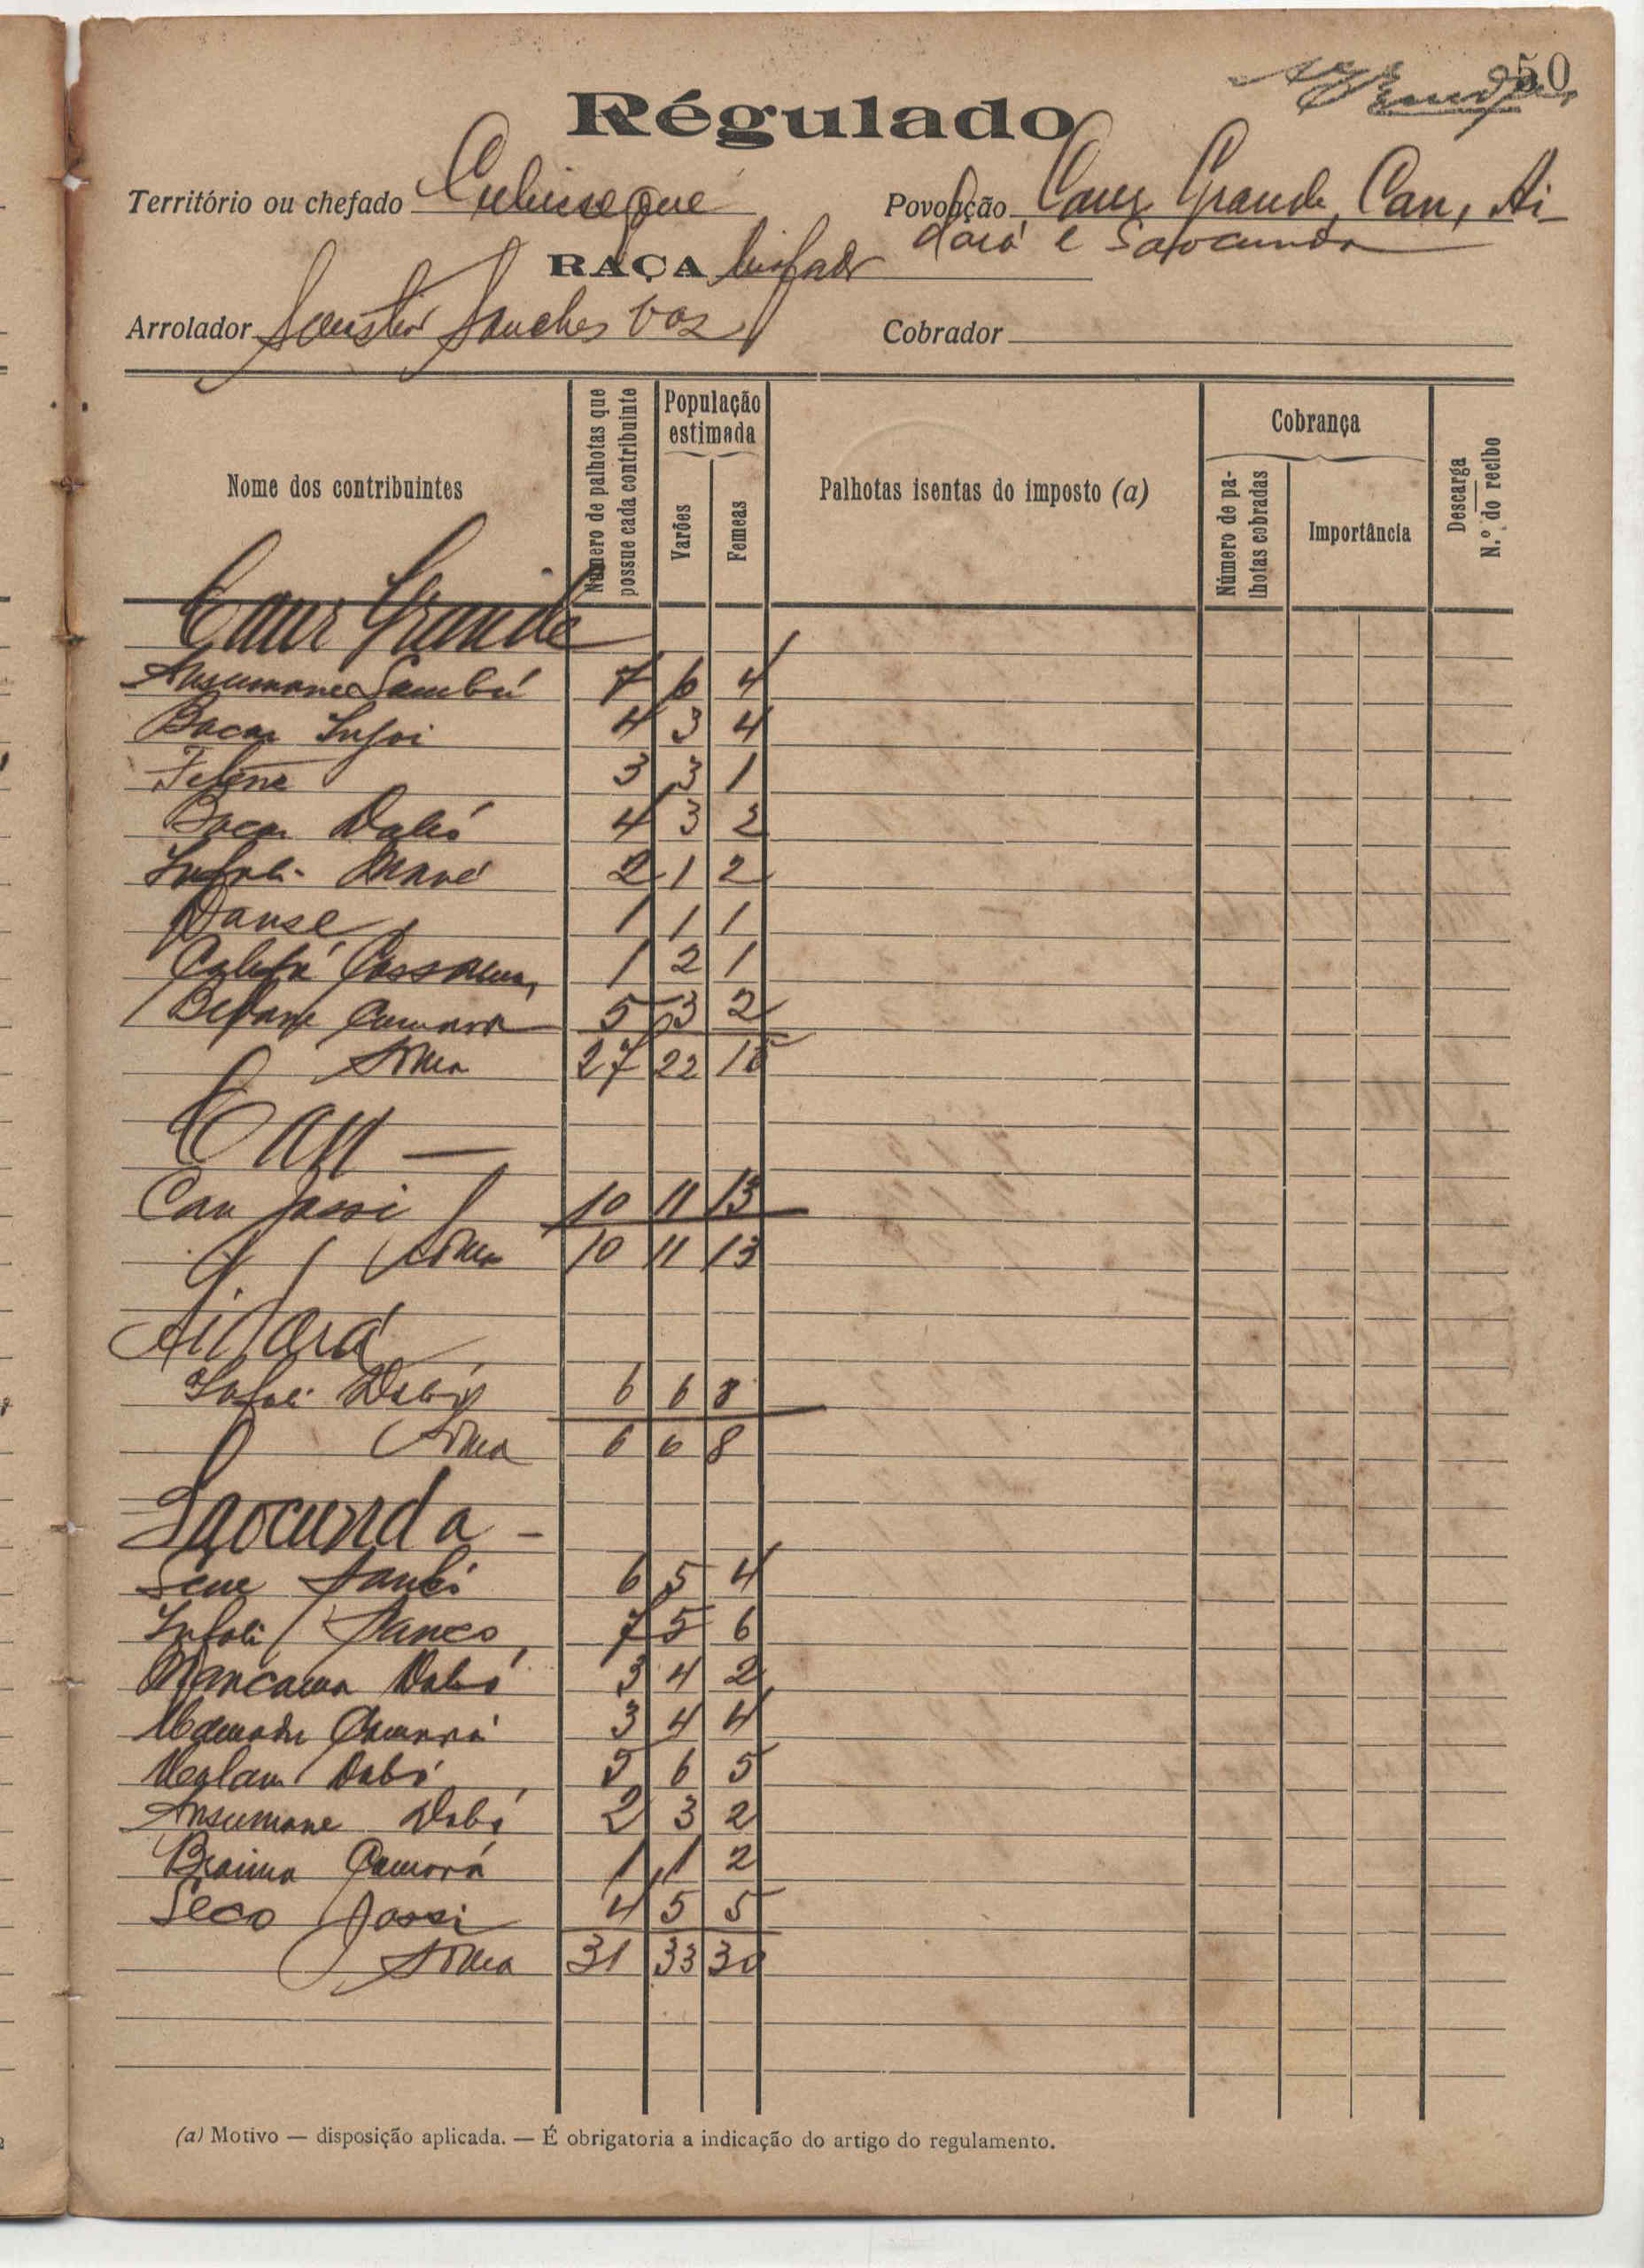 50
Régulado
Território ou chefado Cubisseque Povoação Caur Grande, Can, Ai-
dará e Saocunda
RAÇA biafada
Arrolador Sanches Vaz Cobrador
Nome dos contribuintes
Número de palhotas que possue cada contribuinte
População estimada
Varões
Femeas
Palhotas isentas do imposto (a)
Cobrança
Número de pa-
lhotas cobradas
Importância
Descarga
N.º do recibo
Caur Grande
Ansumane Sambú 7 6 4
Bacar 4 3 4
3 3 1
Bacar Dabó 4 3 2
Infali Mané 2 1 2
Danse 1 1 1
Cassamá 1 2 1
Camará 5 3 2
Soma 27 22 16
Can —
Can Jassi 10 11 13
Soma 10 11 13
Aidará
Infali Dabó 6 6 8
Soma 6 6 8
Saocunda -
Sene Sambú 6 5 4
Infali Sanco 7 5 6
Mancaura Dabó 3 4 2
Mamadu Camará 3 4 4
Malam Dabó 5 6 5
Ansumane Dabó 2 3 2
Braima Camará 1 1 2
Seco Jassi 4 5 5
Soma 31 33 30
(a) Motivo — disposição aplicada. — É obrigatoria a indicação do artigo do regulamento.